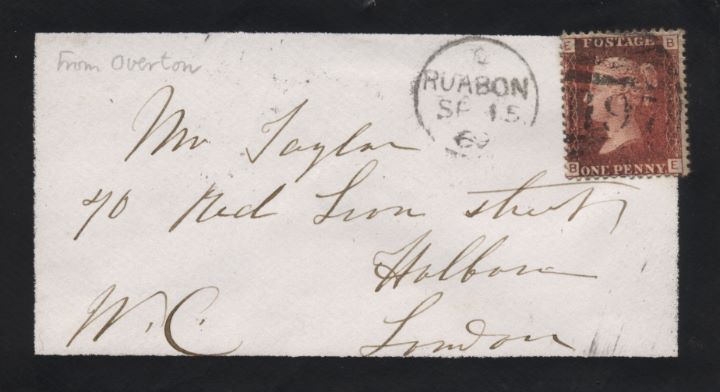 From Overton
C
RUABON
SP 15
69
E POSTAGE B
197
B ONE PENNY E
Mr Taylor
70 Red Lion street
Holborn
W.C. London